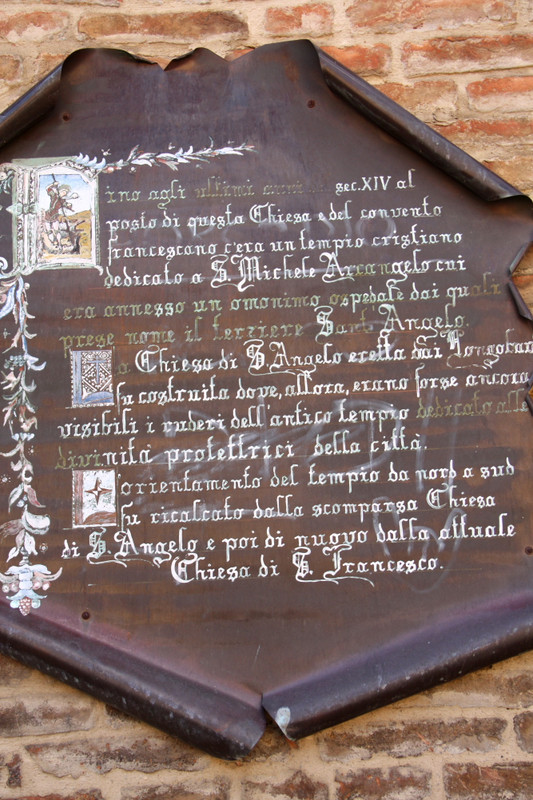 Fino agli ultimi anni.... sec.XIV al
posto di questa Chiesa e del convento
francescano c'era un tempio cristiano
dedicato a S. Michele Arcangelo cui
era annesso un omonimo ospedale dai quali
prese nome il terziere Sant'Angelo.
La Chiesa di S. Angelo eretta dai Longobar
fu costruita dove, allora, erano forse ancora
visibili i ruderi dell'antico tempio dedicato alle
divinità protettrici della città.
L'orientamento del tempio da nord a sud
fu ricalcato dalla scomparsa Chiesa
di S. Angelo e poi di nuovo dalla attuale
Chiesa di S. Francesco.